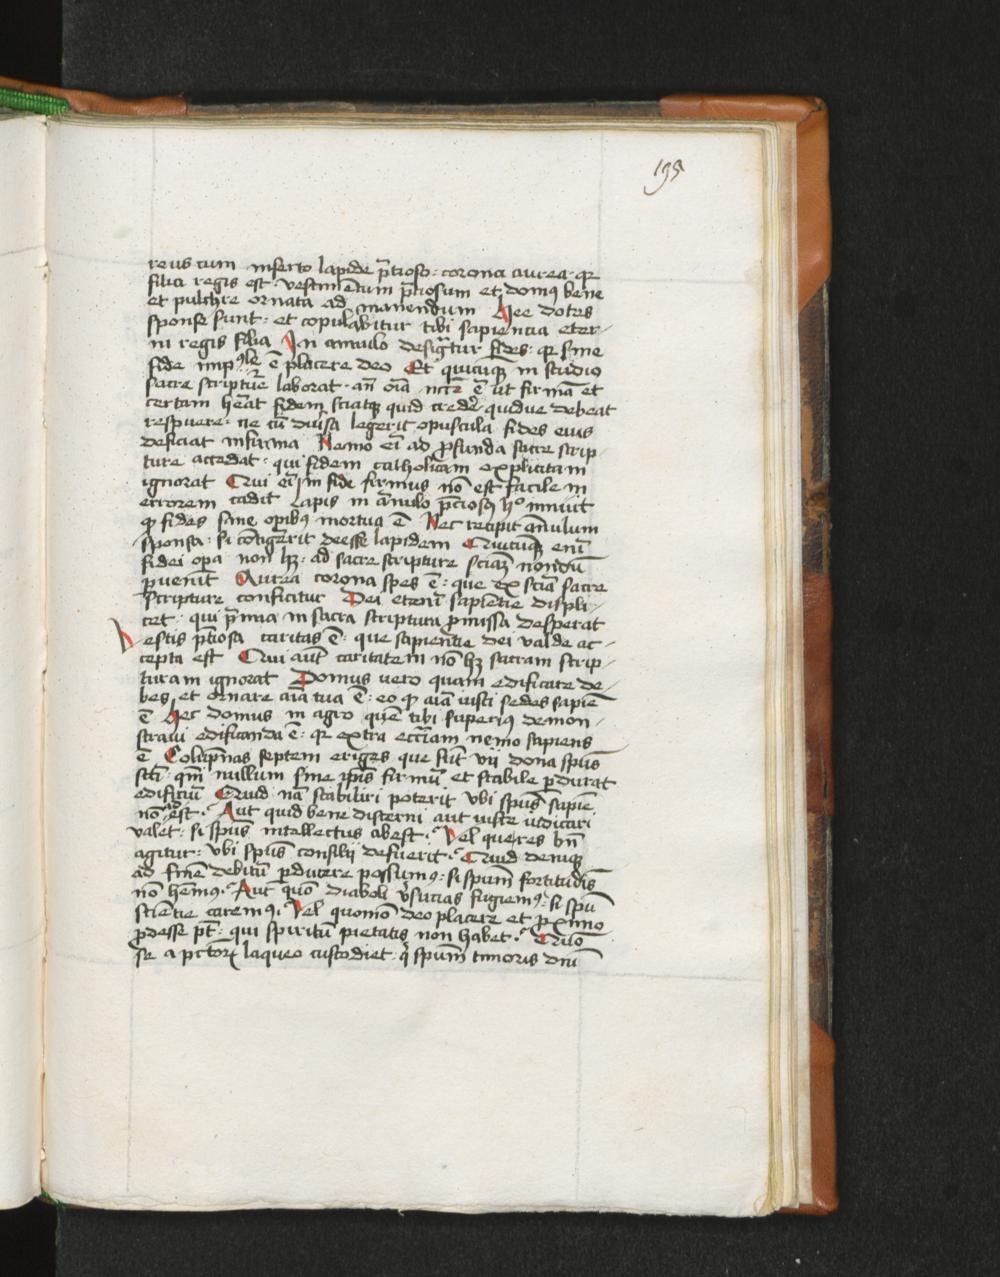 195
reus cum inserto lapide p̄cioso · corona aurea · qr
filia regis est · vestimentum p̄ciosum et domus bene
et pulchre ornata ad manendum Hee dotes
sponse sunt · et copulabitur tibi sapiencia eter-
ni regis filia In annulo desigtur fides · qr sine
fide impossibile ē placere deo Et quicūq in studio
sacre scripture laborat · an oīa necē ē ut firmā et
certam heat fidem sciatq quid credē quidue debeat
respuere · ne cū diuīsa legerit opuscula fides eius
deficiat infirma Nemo eī ad profunda sacre scrip-
ture accedat · qui fidem catholicam explicitam
ignorat Qui enim in fide firmus nō est facile in
errorem cadit Lapis in ānulo p̄ciosus hº innuit
qp fides sine opibus mortua ē Nec recipit ānulum
sponsa · si contigerit deesse lapidem Quicūq enī
fidei opa non hz · ad sacre scripture sciāz nondū
puenit Aurea corona spes ē · que ex sciā sacre
scripture conficitur Dei etenī sapiētie displi-
cet · qui p̄mia in sacra scriptura promissa desperat
Vestis p̄tiosa caritas ē · que sapientie dei valde ac-
cepta est Qui aut caritatem nō hz sacram scrip-
turam ignorat Domus uero quam edificare de-
bes et ornare aīa tua ē · eo qp aīa iusti sedes sapiē
ē Hec domus in agro quē tibi superius demon-
straui edificanda ē · qr extra eccliam nemo sapiens
ē Columpnas septem eriges que sūt vii dona spūs
scti · qm nullum sine ipīs firmū et stabile pdurat
edificiū Quid nā stabiliri poterit vbi spūs sapiē
nō adest · Aut quid bene discerni aut iuste iudicari
valet · si spūs intellectus abest · Vel que res bn
agitur · vbi spūs consilii defuerit · Quid deniq
ad finē debitū pducere possumus · si spūm fortitudīs
nō hēmus · Aut quō diaboli vsucias fugiemus · si spū
scientie caremus · Vel quomō deo placere et pximo
pdesse pt · qui spiritū pietatis non habet · Quō
se a pctorz laqueo custodiet · q spūm timoris dnī